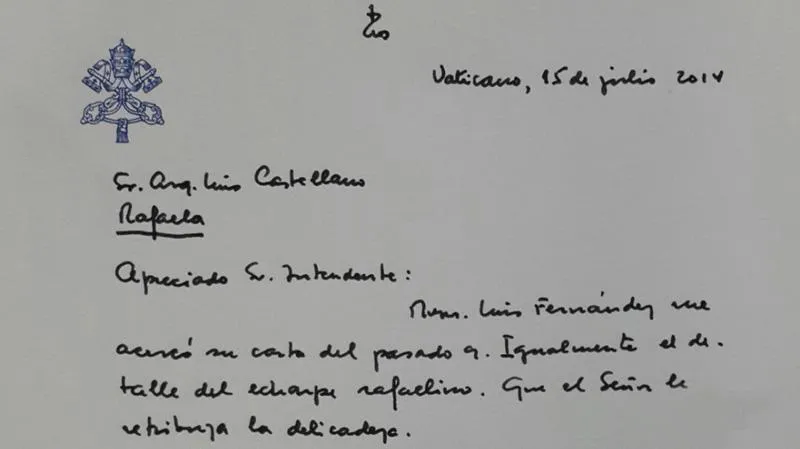 Vaticano, 15 de julio 2014
Sr. Arq. Luis Castellano
Rafaela
Apreciado Sr. Intendente:
Mons. Luis Fernández me
acercó su carta del pasado 9. Igualmente el de-
talle del echarpe rafaelino. Que el Señor le
retribuya la delicadeza.